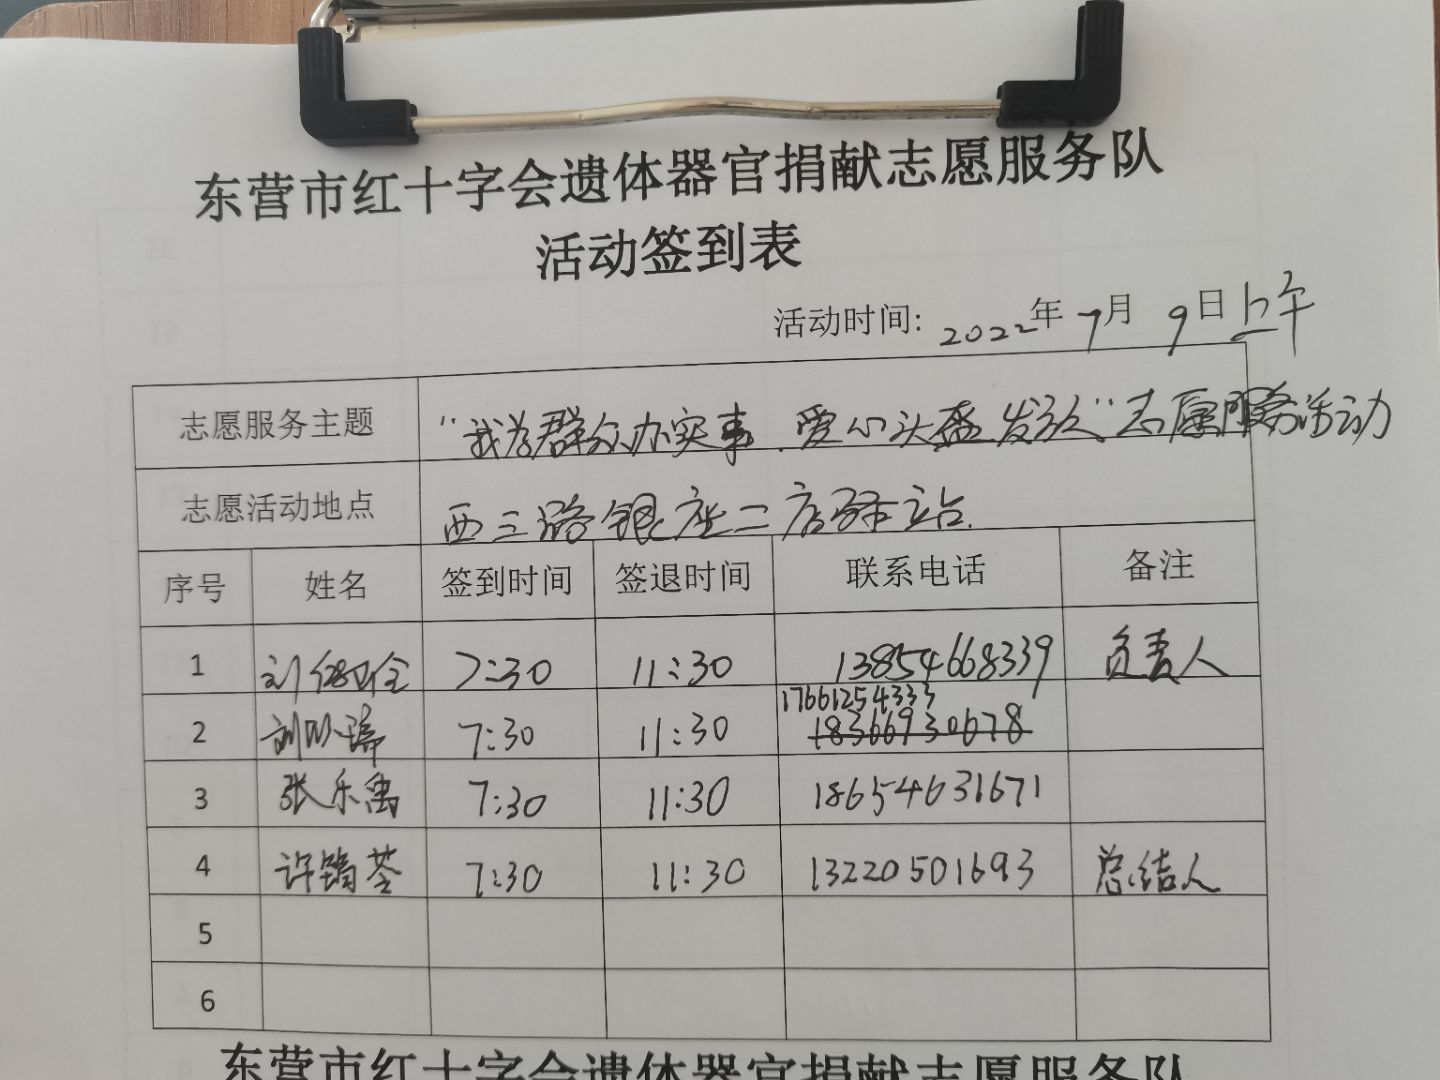 东营市红十字会遗体器官捐献志愿服务队
活动签到表
活动时间: 2022年7月9日上午
志愿服务主题 "我为群众办实事.爱心头盔发放"志愿服务活动
志愿活动地点 西三路银座二店驿站.
序号 姓名 签到时间 签退时间 联系电话 备注
1 刘 7:30 11:30 13854668339 负责人
17661254333
2 刘 7:30 11:30 18366930678
3 张乐禹 7:30 11:30 18654631671
4 许 7:30 11:30 13220501693 总结人
5
6
东营市红十字会遗体器官捐献志愿服务队